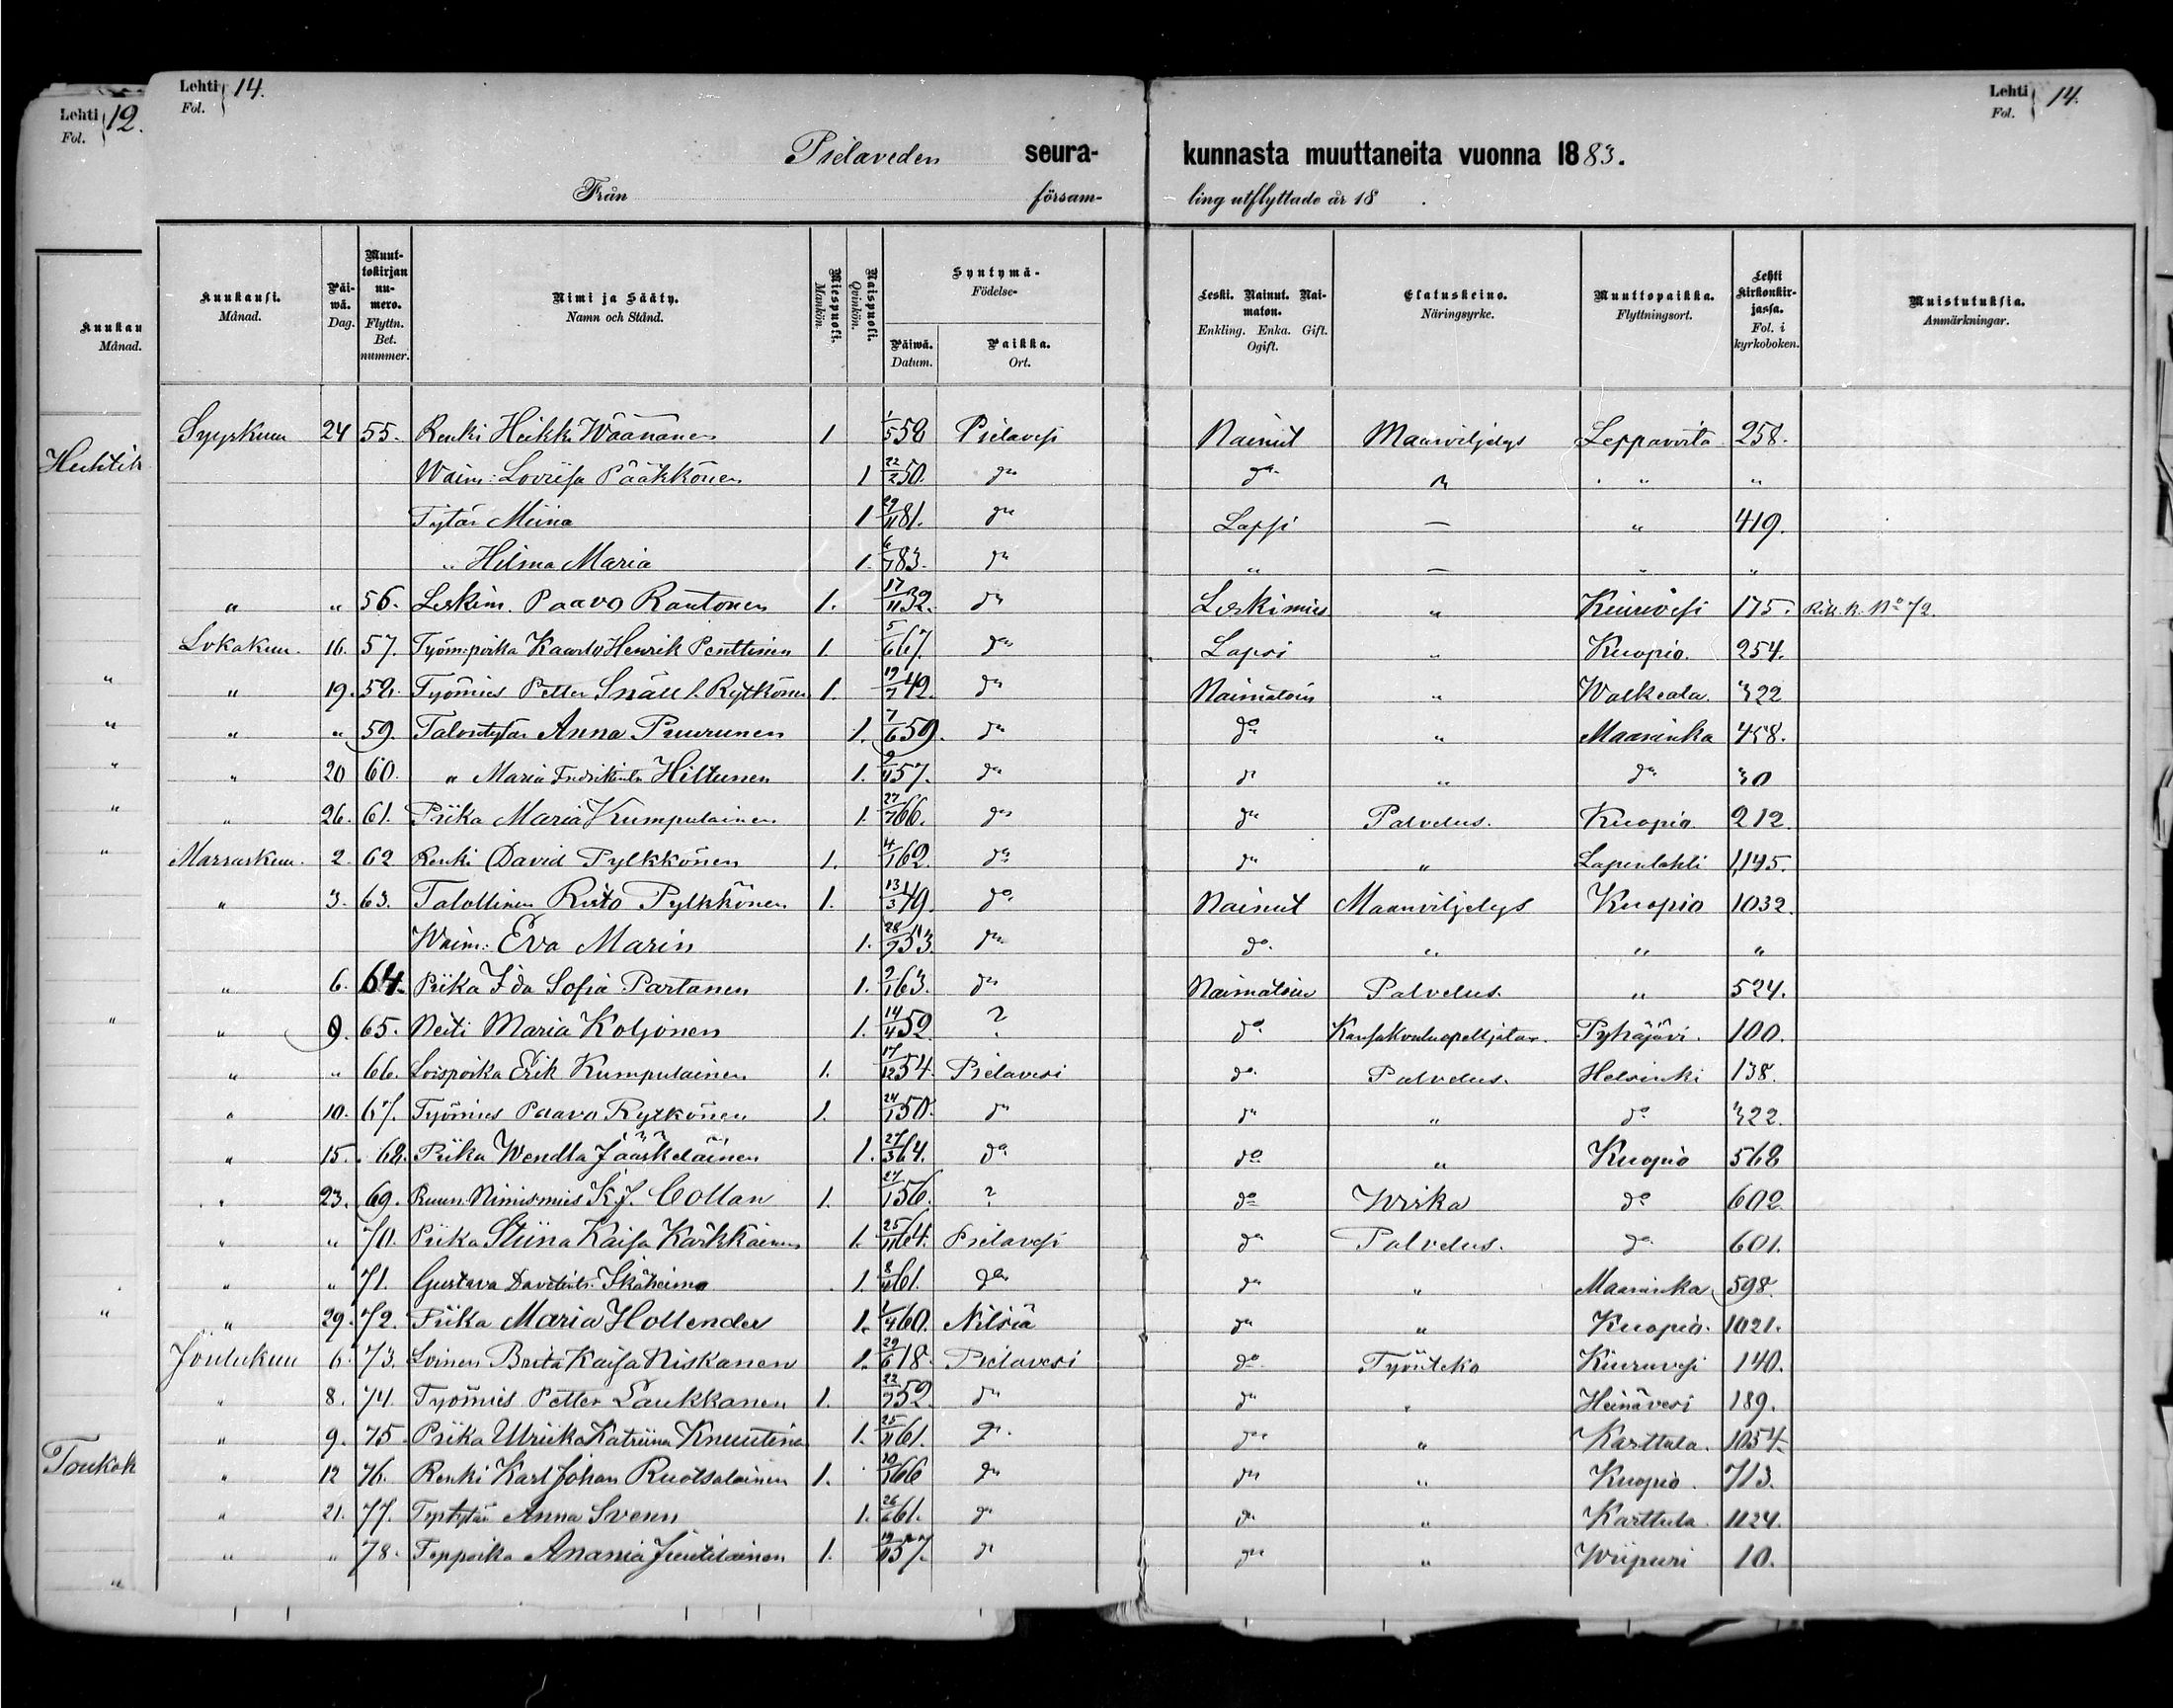 Lehti 12.
Fol.
Kuukau
Månad.
Huhtik
Toukok
Lehti 14.
Fol.
Lehti 14.
Fol.
Pielaveden seura- kunnasta muuttaneita vuonna 1883.
Från försam- ling utflyttade år 18 .
Kuukausi. Månad.
Päiwä. Dag.
Muuttokirjan numero. Flyttn. Bet. nummer.
Nimi ja Sääty. Namn och Stånd.
Miespuoli. Mankön.
Naispuoli. Qvinkön.
Syntymä- Födelse-
Päiwä. Datum.
Paikka. Ort.
Leski. Nainut. Naimaton. Enkling. Enka. Gift. Ogift.
Elatuskeino. Näringsyrke.
Muuttopaikka. Flyttningsort.
Lehti Kirkonkirjassa. Fol. i kyrkoboken.
Muistutuksia. Anmärkningar.
Syyskuu 24 55. Renki Heikki Wäänänen 1 1/5 58 Pielavesi Nainut Maanviljelys Leppävirta 258.
Waim: Lovisa Pääkkönen 1 22/2 50. do do " " "
Tytär Miina 1 29/11 81. do Lapsi — " 419.
" Hilma Maria 1. 6/7 83. do " — " "
" " 56. Leskim. Paavo Rautonen 1. 17/11 32. do Leskimies " Kiuruvesi 175. Rik. k. No 72.
Lokakuu. 16. 57. Työm:poika Kaarlo Henrik Penttinen 1. 5/6 67. do Lapsi " Kuopio. 254.
" 19. 58. Työmies Petter Snäll l. Rytkönen 1. 19/7 42. do Naimatoin " Walkeala. 322
" " 59. Talontytär Anna Puurunen 1. 7/6 59. do do " Maaninka 458.
" 20 60. " Maria Fredrikint. Hiltunen 1. 9/11 57. do do " do 30
" 26. 61. Piika Maria Kumpulainen 1. 27/7 66. do do Palvelus. Kuopio. 212.
Marraskuu. 2. 62 Renki David Pylkkönen 1. 4/1 62. do do " Lapinlahti 1,145.
" 3. 63. Talollinen Risto Pylkkönen 1. 13/3 49. do Nainut Maanviljelys Kuopio 1032.
Waim: Eva Marin 1. 28/9 53. do do. " " "
" 6. 64. Piika Ida Sofia Partanen 1. 2/1 63. do Naimatoin Palvelus. " 524.
" 9. 65. Neiti Maria Koljonen 1. 14/4 52. ? do Kansakouluopettajatar. Pyhäjärvi. 100.
" " 66. Loispoika Erik Kumpulainen 1. 17/12 54. Pielavesi do. Palvelus. Helsinki 138.
" 10. 67. Työmies Paavo Rytkönen 1. 24/1 50. do do " do 322.
" 15. 68. Piika Wendla Jääskeläinen 1. 27/3 64. do do " Kuopio 568
" 23. 69. Ruun. Nimismies K. J. Collan 1. 27/1 56. ? do Wirka do 602
" " 70. Piika Stiina Kaisa Kärkkäinen 1. 25/11 64. Pielavesi do Palvelus. do 601.
" " 71. Gustava Davidint. Ikäheimo 1. 8/4 61. do do " Maaninka 598.
" 29. 72. Piika Maria Hollender 1. 1/4 60. Nilsiä do " Kuopio. 1021.
Joulukuu 6. 73. Loinen Brita Kaisa Niskanen 1. 29/6 18. Pielavesi do Työnteko Kiuruvesi 140.
" 8. 74. Työmies Petter Laukkanen 1. 22/7 52. do do " Heinävesi 189.
" 9. 75. Piika Ulriika Katriina Knuutinen 1. 25/11 61. do do " Karttula. 1054.
" 12 76. Renki Karl Johan Ruotsalainen 1. 10/1 66 do do " Kuopio. 713.
" 21. 77. Tpntytär Anna Svenn 1. 26/6 61. do do " Karttula. 1124.
" " 78. Tpnpoika Anania Juutilainen 1. 19/11 57. do do " Wiipuri 10.